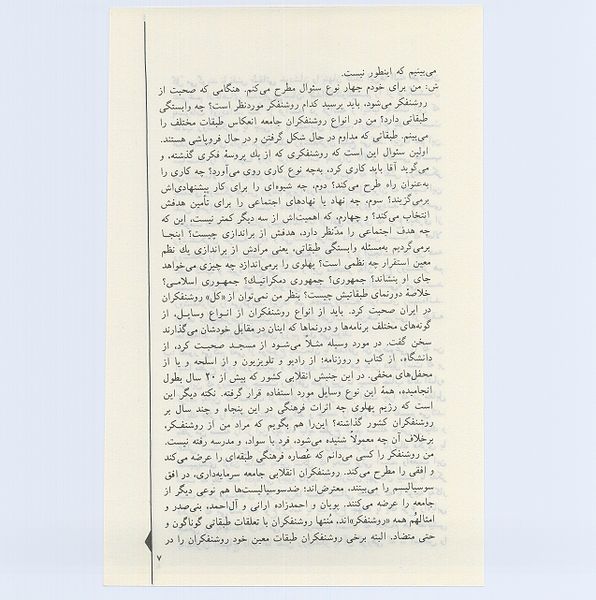 می‌بینیم که اینطور نیست.
ش: من برای خودم چهار نوع سئوال مطرح می‌کنم. هنگامی که صحبت از
روشنفکر می‌شود، باید پرسید کدام روشنفکر موردنظر است؟ چه وابستگی
طبقاتی دارد؟ من در انواع روشنفکران جامعه انعکاس طبقات مختلف را
می‌بینم. طبقاتی که مداوم در حال شکل گرفتن و در حال فروپاشی هستند.
اولین سئوال این است که روشنفکری که از یك پروسهٔ فکری گذشته، و
می‌گوید آقا باید کاری کرد، به‌چه نوع کاری روی می‌آورد؟ چه کاری را
به‌عنوان راه طرح می‌کند؟ دوم، چه شیوه‌ای را برای کار پیشنهادی‌اش
برمی‌گزیند؟ سوم، چه نهاد یا نهادهای اجتماعی را برای تأمین هدفش
انتخاب می‌کند؟ و چهارم، که اهمیت‌اش از سه دیگر کمتر نیست، این که
چه هدف اجتماعی را مدّنظر دارد، هدفش از براندازی چیست؟ اینجا
برمی‌گردیم به‌مسئله وابستگی طبقاتی، یعنی مرادش از براندازی یك نظم
معین استقرار چه نظمی است؟ پهلوی را برمی‌اندازد چه چیزی می‌خواهد
جای او بنشاند؟ جمهوری؟ جمهوری دمکراتیك؟ جمهوری اسلامی؟
خلاصهٔ دورنمای طبقاتیش چیست؟ بنظر من نمی‌توان از «کل» روشنفکران
در ایران صحبت کرد. باید از انواع روشنفکران از انواع وسایل، از
گونه‌های مختلف برنامه‌ها و دورنماها که اینان در مقابل خودشان می‌گذارند
سخن گفت. در مورد وسیله مثلاً می‌شود از مسجد صحبت کرد، از
دانشگاه، از کتاب و روزنامه؛ از رادیو و تلویزیون و از اسلحه و یا از
محفل‌های مخفی. در این جنبش انقلابی کشور که بیش از ۲۰ سال بطول
انجامیده، همهٔ این نوع وسایل مورد استفاده قرار گرفته. نکته دیگر این
است که رژیم پهلوی چه اثرات فرهنگی در این پنجاه و چند سال بر
روشنفکران کشور گذاشته؟ این‌را هم بگویم که مراد من از روشنفکر،
برخلاف آن چه معمولاً شنیده می‌شود، فرد با سواد، و مدرسه رفته نیست.
من روشنفکر را کسی می‌دانم که عُصاره فرهنگی طبقه‌ای را عرضه می‌کند
و افقی را مطرح می‌کند. روشنفکران انقلابی جامعه سرمایه‌داری، در افق
سوسیالیسم را می‌بینند، معترض‌اند؛ ضدسوسیالیست‌ها هم نوعی دیگر از
جامعه را عرضه می‌کنند. پویان و احمدزاده ارانی و آل‌احمد، بنی‌صدر و
امثالهُم همه «روشنفکر»اند، مُنتها روشنفکران با تعلقات طبقاتی گوناگون و
حتی متضاد. البته برخی روشنفکران طبقات معین خود روشنفکران را در
۷